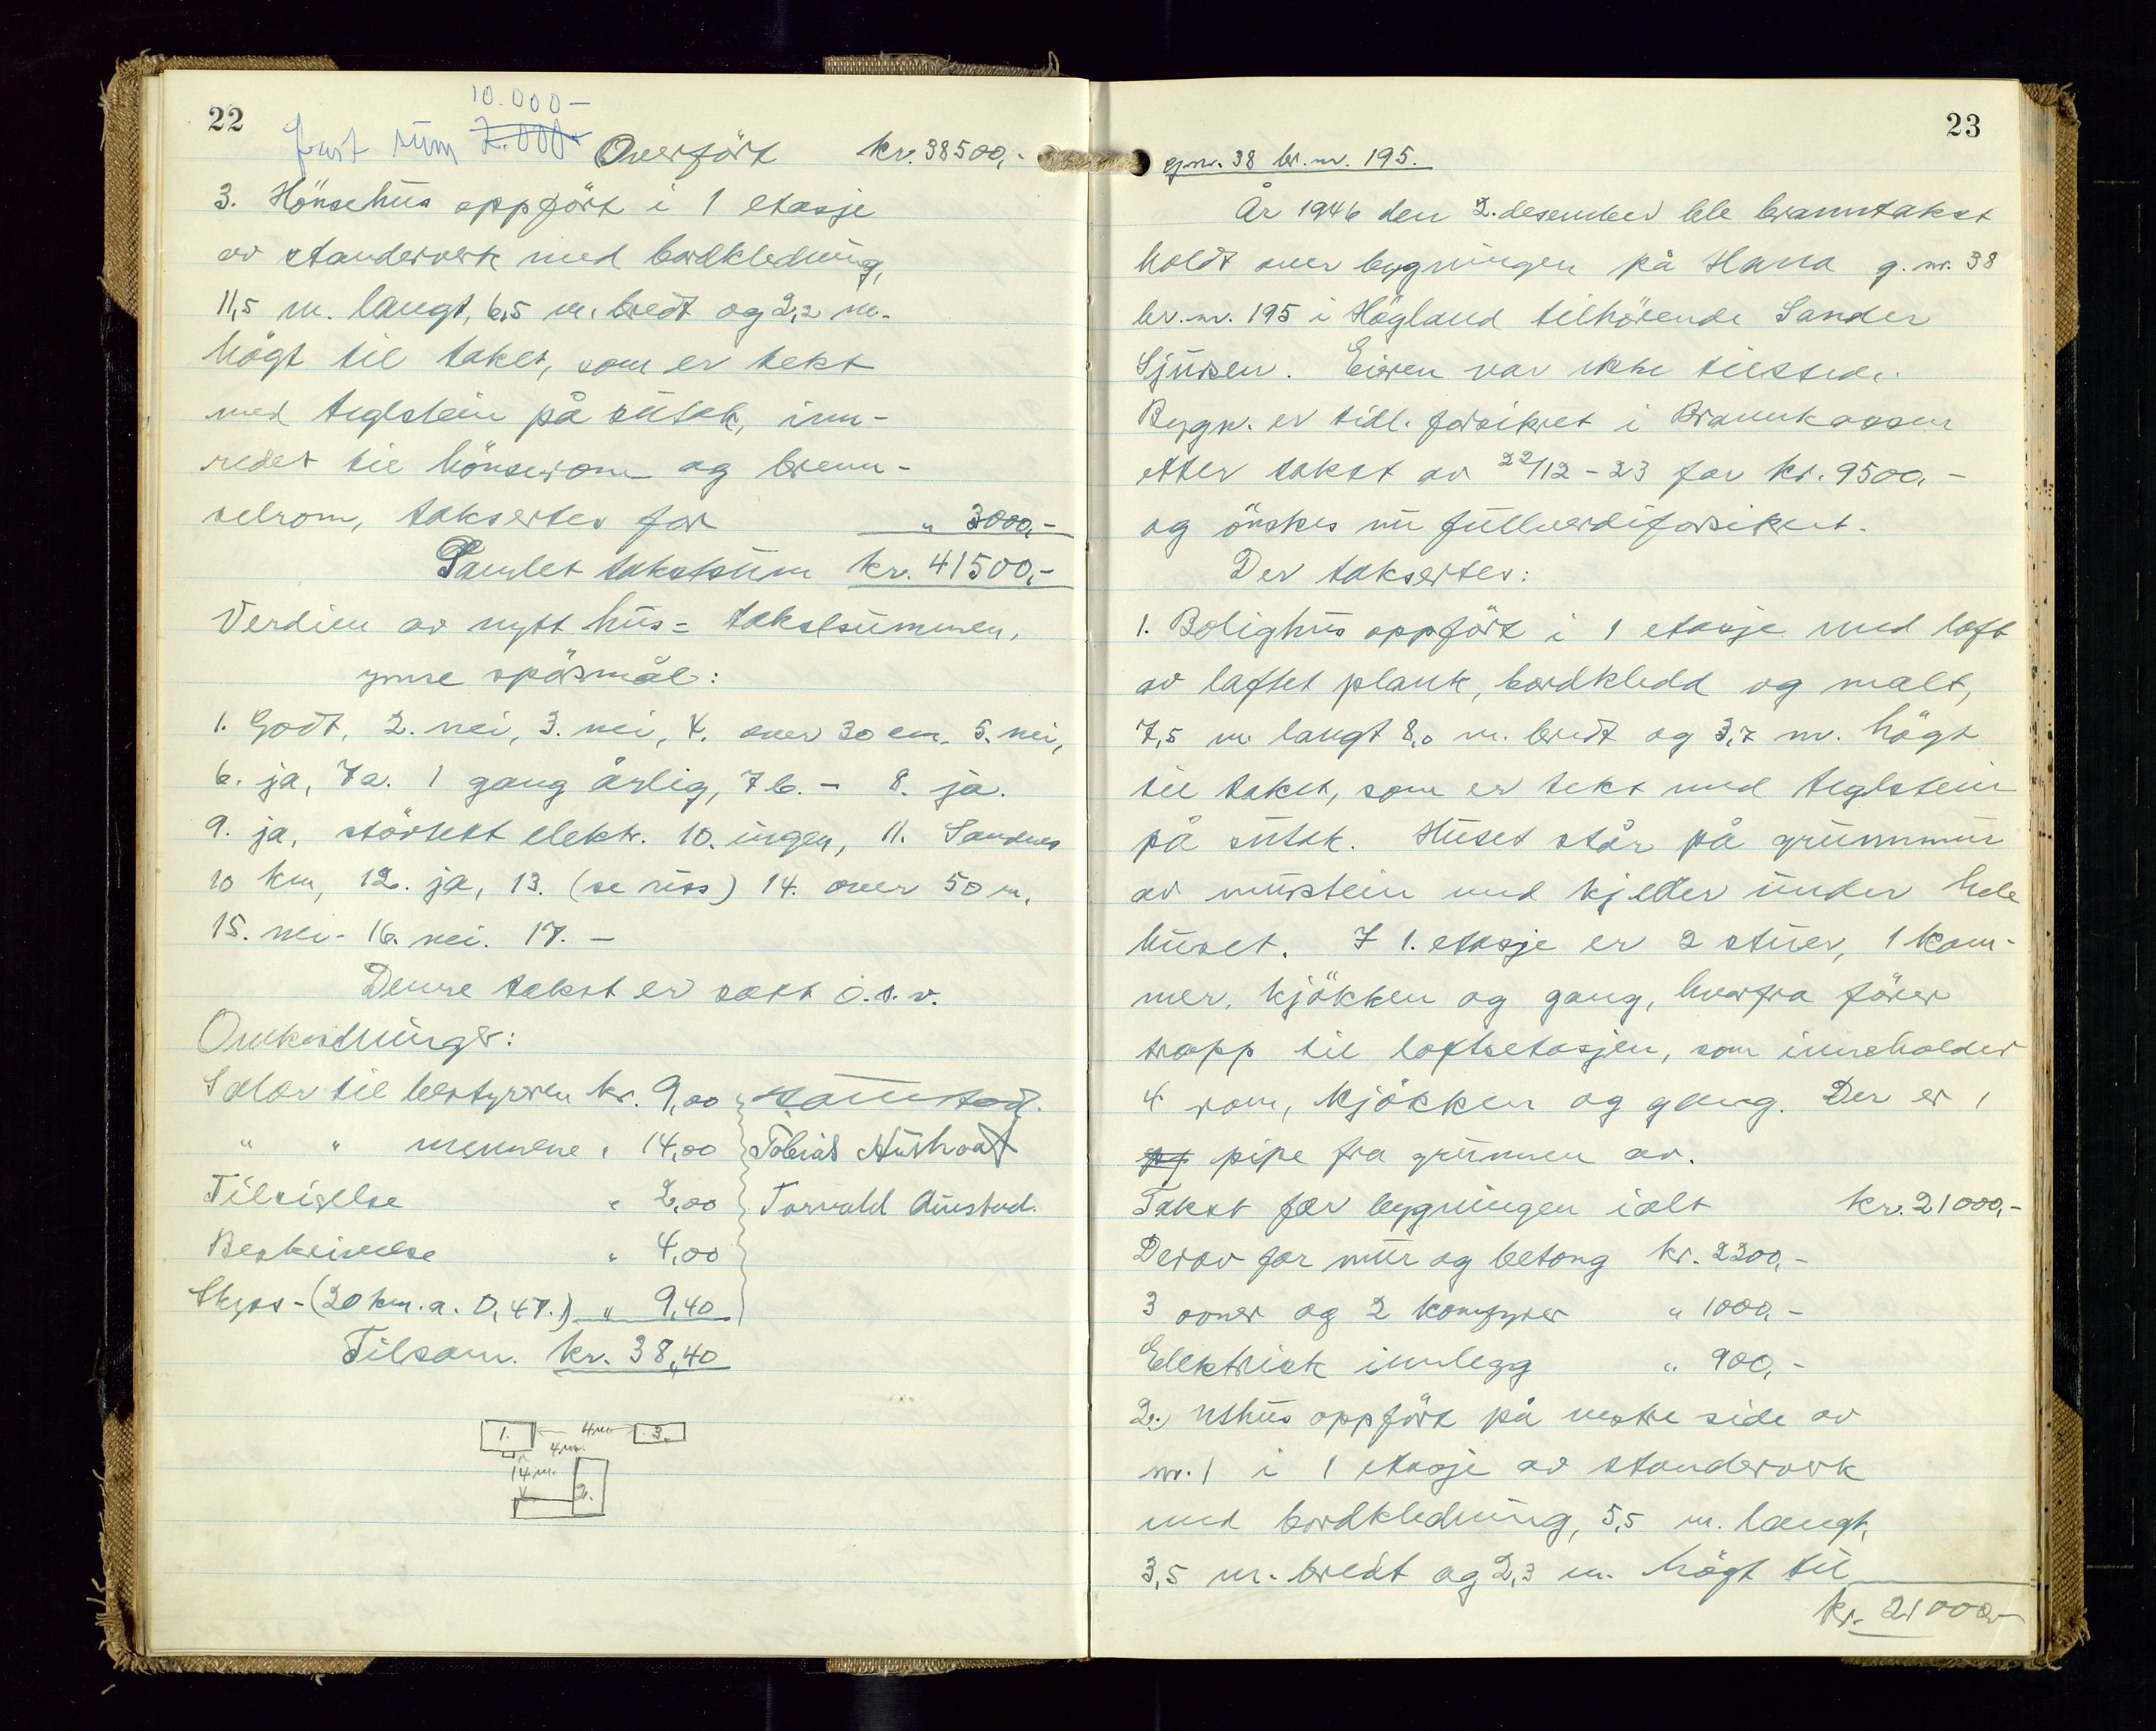 22
10.000-
fast sum 7.000- Overført kr. 38500,-
3. Hönsehus oppfört i 1 etasje
av standerverk med bordkledning,
11,5 m. langt, 6,5 m. bredt og 2,2 m.
högt til taket, som er tekt
med teglstein på sutak, inn-
redet til hönserom og bren-
selrom, takseres for " 3000,-
Samlet takstsum kr. 41500,-
Verdien av nytt hus = takstsummen.
ymse spörsmål:
1. Godt, 2. nei, 3. nei, 4. over 30 cm. 5. nei,
6. ja, 7a. 1 gang årlig, 7b. - 8. ja.
9. ja, störtekt elektr. 10. ingen, 11. Sandnes
10 km, 12. ja, 13. (se riss) 14. over 50 m.
15. nei - 16. nei. 17. -
Denne takst er satt o.s.v.
Omkostninger:
Salær til bestyreren kr. 9,00
" " mennene " 14,00 Tobias Hushoat
Tilsigelse " 2,00 Torvald Austad.
Beskrivelse " 4,00
Skyss - (20 km. a. 0,47.) " 9,40
Tilsam. kr. 38,40
1. 4m 3.
4m.
14m.
2.
23
gnr. 38 br. nr. 195.
År 1946 den 2. desember ble branntakst
holdt over bygningen på Hana g. nr. 38
br. nr. 195 i Högland tilhörende Sander
Sjursen. Eieren var ikke tilstede.
Bygn. er tidl. forsikret i Brannkassen
etter takst av 22/12-23 for kr. 9500,-
og önskes nu fullverdiforsikret.
Der takseres:
1. Bolighus oppfört i 1 etasje med loft
av laftet plank, bordkledd og malt,
7,5 m. langt 8,0 m. bredt og 3,7 m. högt
til taket, som er tekt med teglstein
på sutak. Huset står på grunnmur
av murstein med kjeller under hele
huset. I 1. etasje er 2 stuer, 1 kam-
mer, kjökken og gang, hvorfra förer
trapp til loftsetasjen, som inneholder
4 rom, kjökken og gang. Der er 1
pipe fra grunnen av.
Takst for bygningen ialt kr. 21000,-
Derav for mur og betong kr. 2200,-
3 ovner og 2 komfyrer " 1000,-
Elektrisk innlegg " 900,-
2. Uthus oppfört på vestre side av
nr. 1 i 1 etasje av standerverk
med bordkledning, 5,5 m. langt,
3,5 m. bredt og 2,3 m. högt til
kr. 21000,-